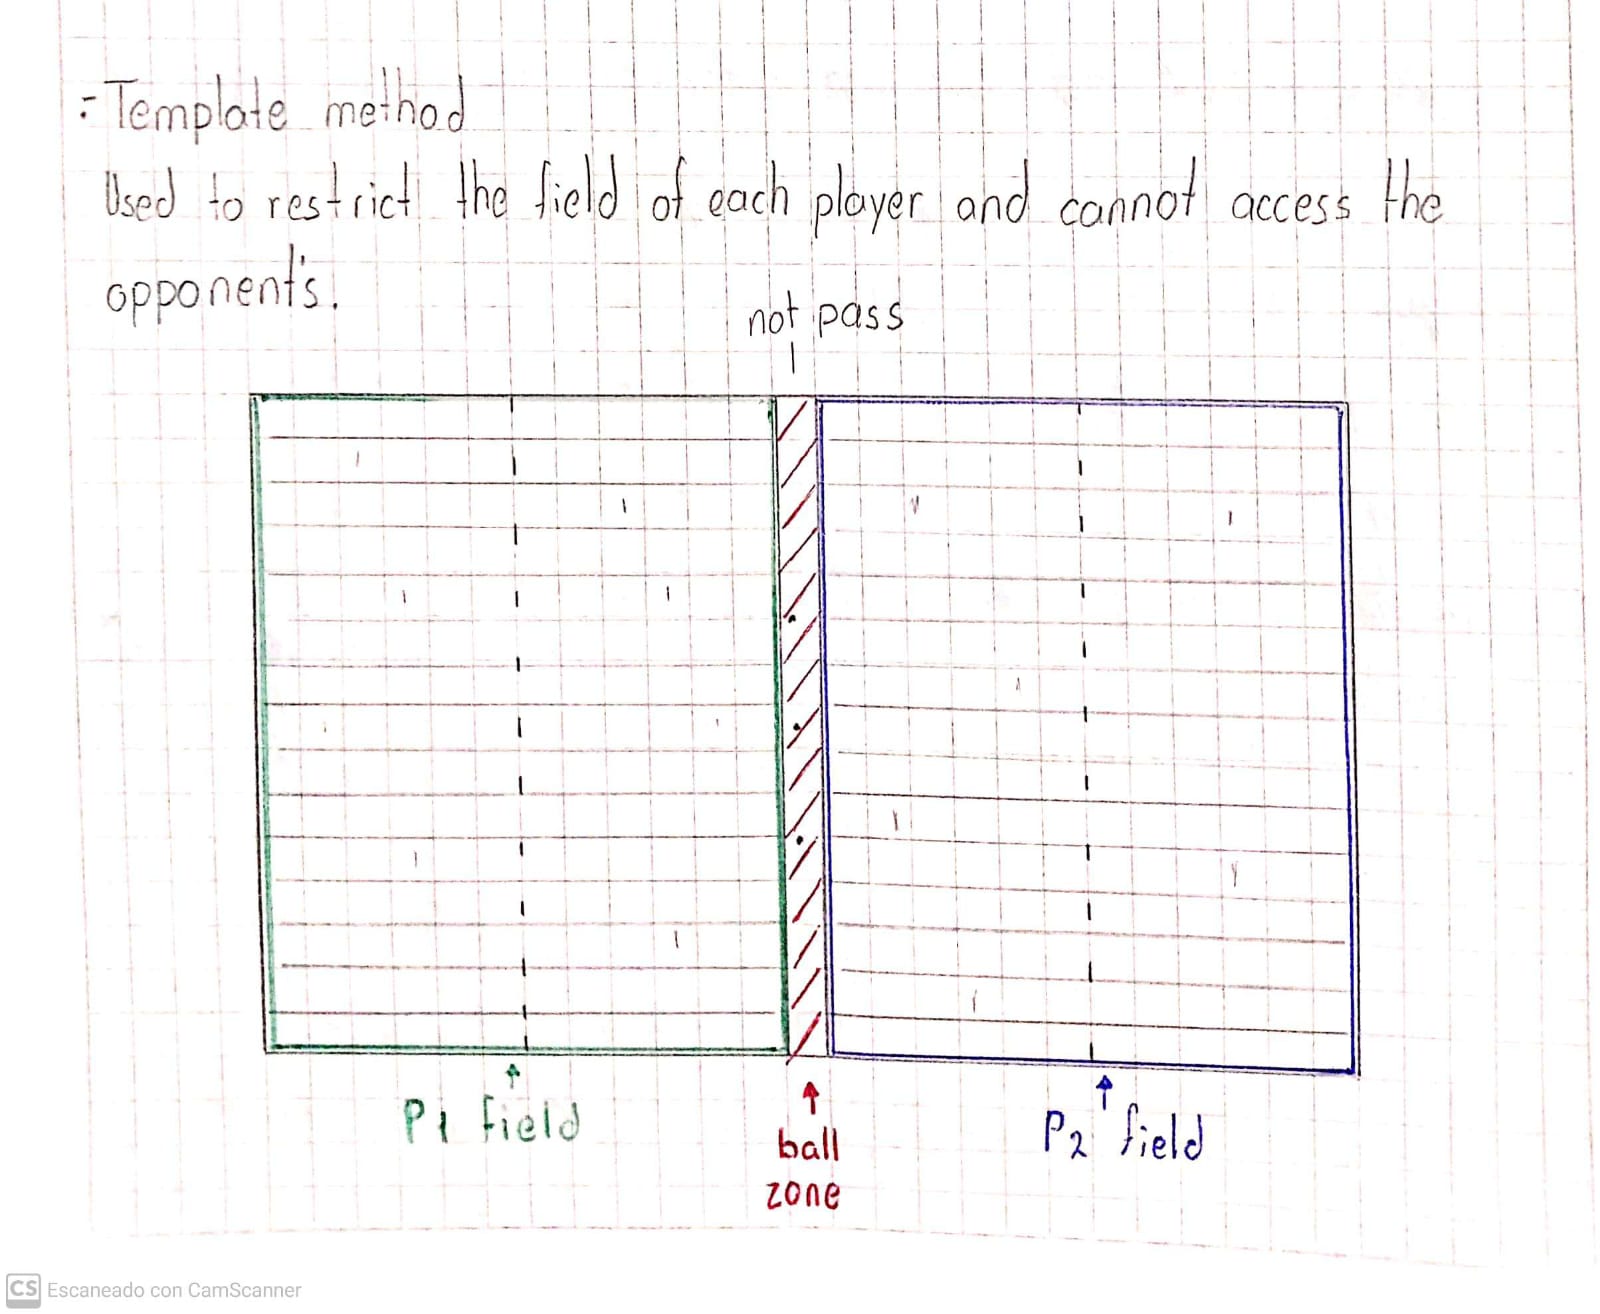 - Template method
Used to restrict the field of each player and cannot access the
opponent's.
not pass
P1 field
ball
zone
P2 field
CS Escaneado con CamScanner